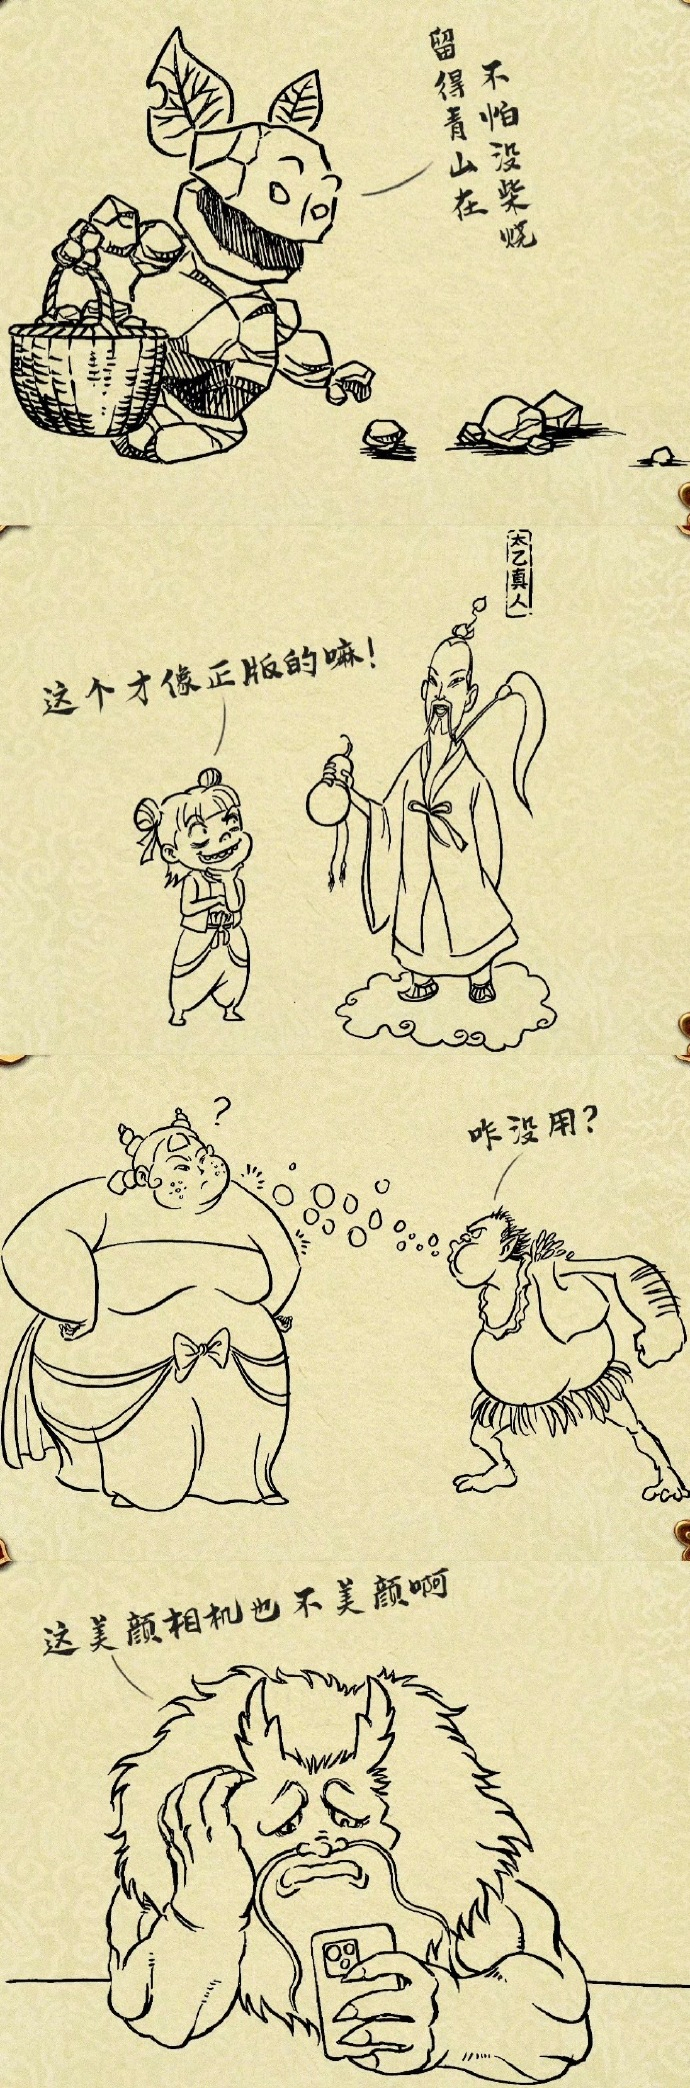 留得青山在
不怕没柴烧
太乙真人
这个才像正版的嘛！
?
咋没用？
这美颜相机也不美颜啊